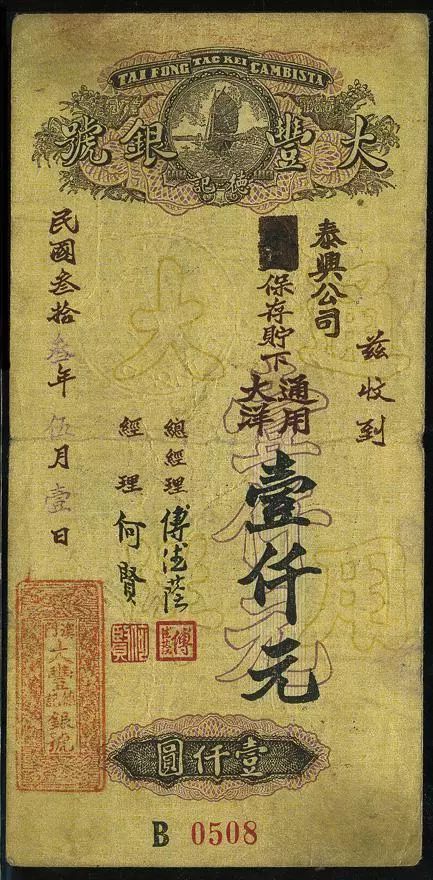 TAI FONG TAC KEI CAMBISTA
大豐銀號
德記
茲收到
泰興公司
保存貯下
通用
大洋
壹仟元
總經理 傅德蔭
經理 何賢
民國叁拾叁年伍月壹日
澳門
大豐銀號
德記
壹仟圓
B 0508